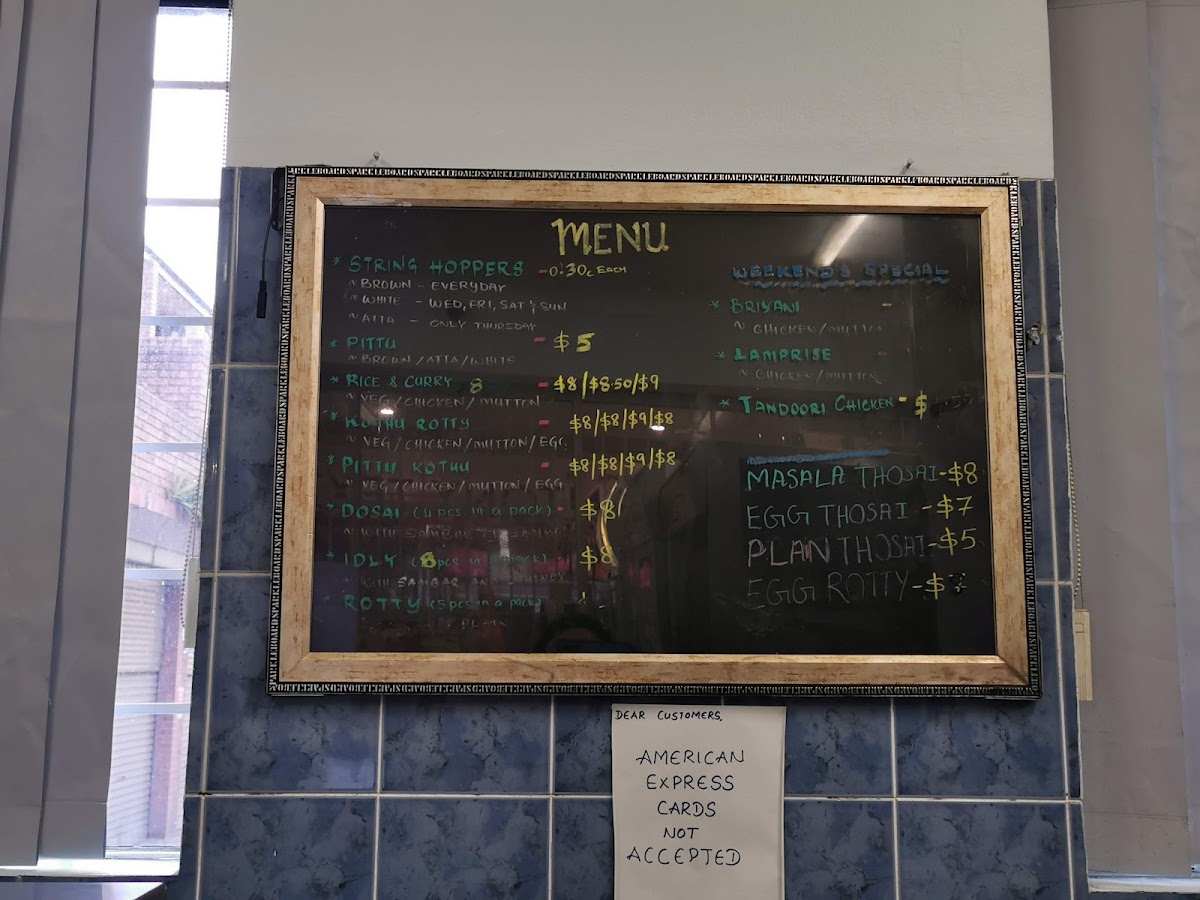 MENU
* STRING HOPPERS - 0.30c EACH
~ BROWN - EVERYDAY
~ WHITE - WED, FRI, SAT & SUN
~ ATTA - ONLY THURSDAY
* PITTU - $5
~ BROWN/ATTA/WHITE
* RICE & CURRY - $8/$8.50/$9
~ VEG/CHICKEN/MUTTON
* KOTHU ROTTY - $8/$8/$9/$8
~ VEG/CHICKEN/MUTTON/EGG
* PITTU KOTHU - $8/$8/$9/$8
~ VEG/CHICKEN/MUTTON/EGG
* DOSAI (4 pcs in a pack) - $8
~ WITH
* IDLY (8 pcs in a pack) - $8
~ WITH SAMBAR AND CHUTNEY
* ROTTY (5 pcs in a pack)
PLAIN
WEEKEND'S SPECIAL
* BRIYANI -
~ CHICKEN/MUTTON
* LAMPRISE
~ CHICKEN/MUTTON
* TANDOORI CHICKEN - $
MASALA THOSAI - $8
EGG THOSAI - $7
PLAN THOSAI - $5
EGG ROTTY - $
DEAR CUSTOMERS,
AMERICAN
EXPRESS
CARDS
NOT
ACCEPTED
SPARKLEBOARDS